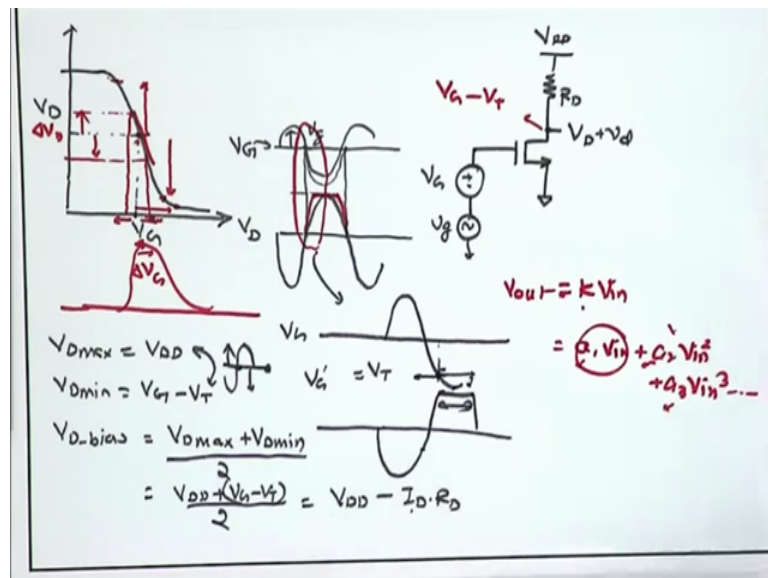 V_D
ΔV_D
V_G
ΔV_G
V_G
V_g
V_D
V_DD
R_D
V_G - V_T
V_D + v_d
V_G
v_g
V_out = k V_in
= a_1 V_in + a_2 V_in^2
+ a_3 V_in^3 ...
V_Dmax = V_DD
V_Dmin = V_G - V_T
V_D-bias = V_Dmax + V_Dmin / 2
= V_DD + (V_G - V_T) / 2 = V_DD - I_D . R_D
V_G
V_G' = V_T